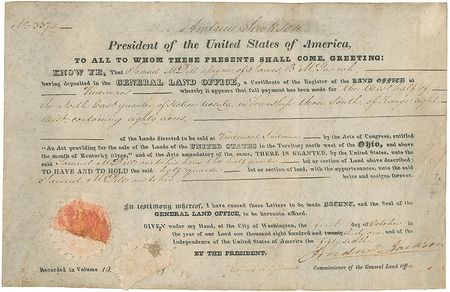 No. 3374
Andrew Jackson
President of the United States of America,
TO ALL TO WHOM THESE PRESENTS SHALL COME, GREETING:
KNOW YE, That Samuel assignee of James B.
having deposited in the GENERAL LAND OFFICE, a Certificate of the Register of the LAND OFFICE at
Vincennes whereby it appears that full payment has been made for the West half of
the North East quarter of Section twenty, in Township three South, of Range eight
West containing eighty acres
of the Lands directed to be sold at Vincennes Indiana by the Acts of Congress, entitled
"An Act providing for the sale of the Lands of the UNITED STATES in the Territory north west of the Ohio, and above
the mouth of Kentucky river," and of the Acts amendatory of the same, THERE IS GRANTED, by the United States, unto the
said Samuel and to his heirs the half quarter lot or section of Land above described:
TO HAVE AND TO HOLD the said half quarter lot or section of Land, with the appurtenances, unto the said
Samuel and to his heirs and assigns forever.
In testimony whereof, I have caused these Letters to be made PATENT, and the Seal of
the GENERAL LAND OFFICE, to be hereunto affixed.
GIVEN under my Hand, at the City of Washington, the first day of October in
the year of our Lord one thousand eight hundred and thirty one and of the
Independence of the United States of America the fifty sixth
BY THE PRESIDENT, Andrew Jackson
Commissioner of the General Land Office.
Recorded in Volume 10